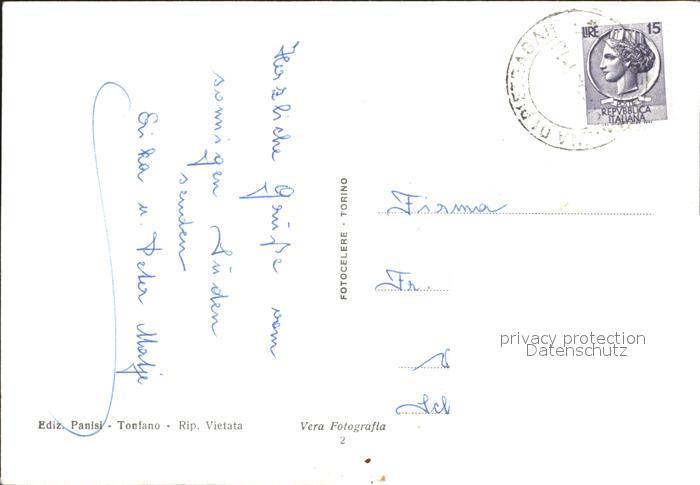 Herzliche Grüße vom
sonnigen Süden
senden
Erika u. Peter Matje
FOTOCELERE - TORINO
LIRE 15
POSTE
REPVBBLICA
ITALIANA
Firma
Fr.
Sch
privacy protection
Datenschutz
Ediz. Panisi - Tonfano - Rip. Vietata
Vera Fotografia
2